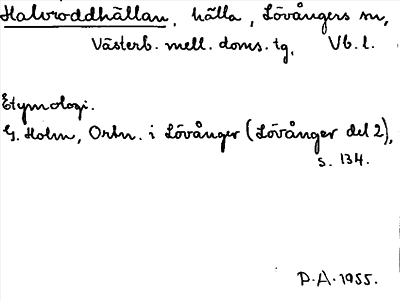 Halvroddhällan, hälla, Lövångers sn,
Västerb. mell. doms. tg, Vb. l.
Etymologi.
G. Holm, Ortn. i Lövånger (Lövånger del 2),
s. 134.
D.A. 1955.